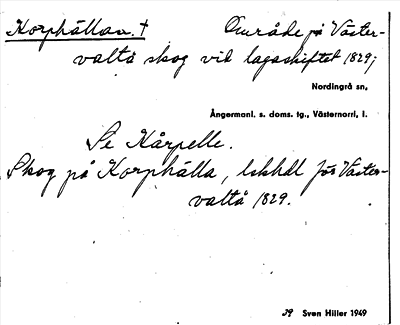 Korphällan. † Område på Väster-
valtå skog vid lagaskiftet 1829;
Nordingrå sn,
Ångermanl. s. doms. tg., Västernorrl. l.
Se Kårpelle.
Skog på Korphälla, lskhdl för Väster-
valtå 1829.
Sven Hiller 1949